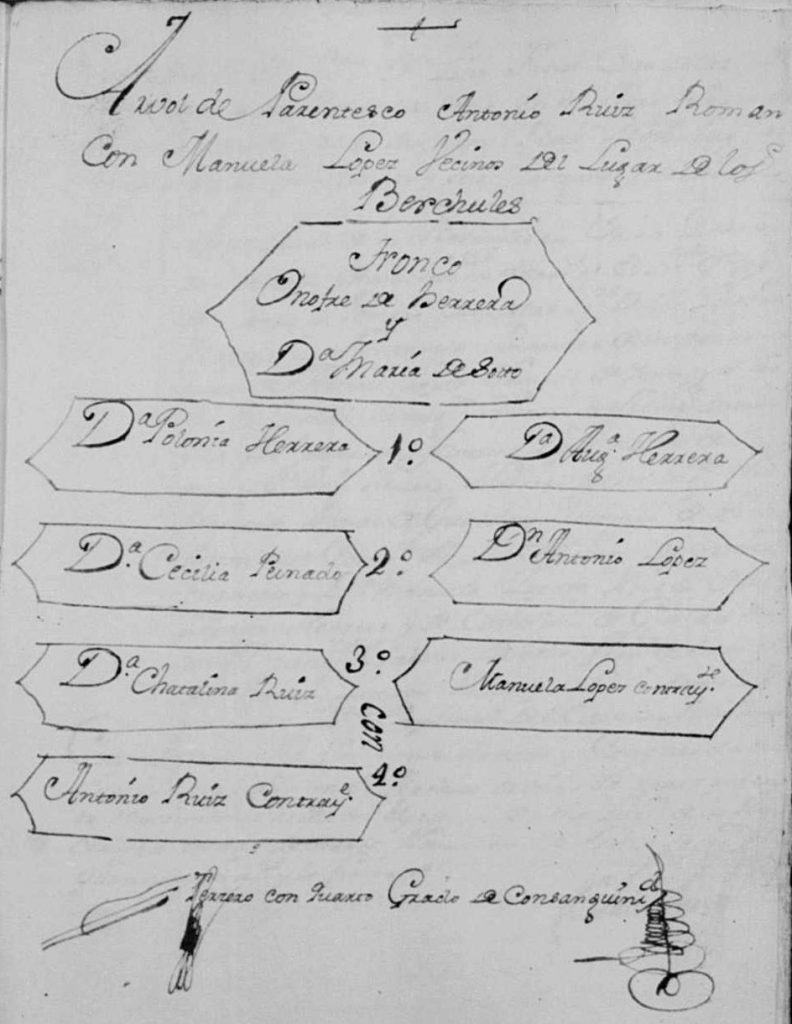 Arvol de Parentesco Antonio Ruiz Roman
Con Manuela Lopez Vecinos del Lugar de los
Berchules
Tronco
Onofre de Herrera
y
Dª Maria de Soto
Dª Polonia Herrera 1º Dª Augª Herrera
Dª Cecilia Peinado 2º Dn Antonio Lopez
Dª Chatalina Ruiz 3º Manuela Lopez contraye
con
Antonio Ruiz Contraye 4º
Terzero con quarto Grado de Consanguinid